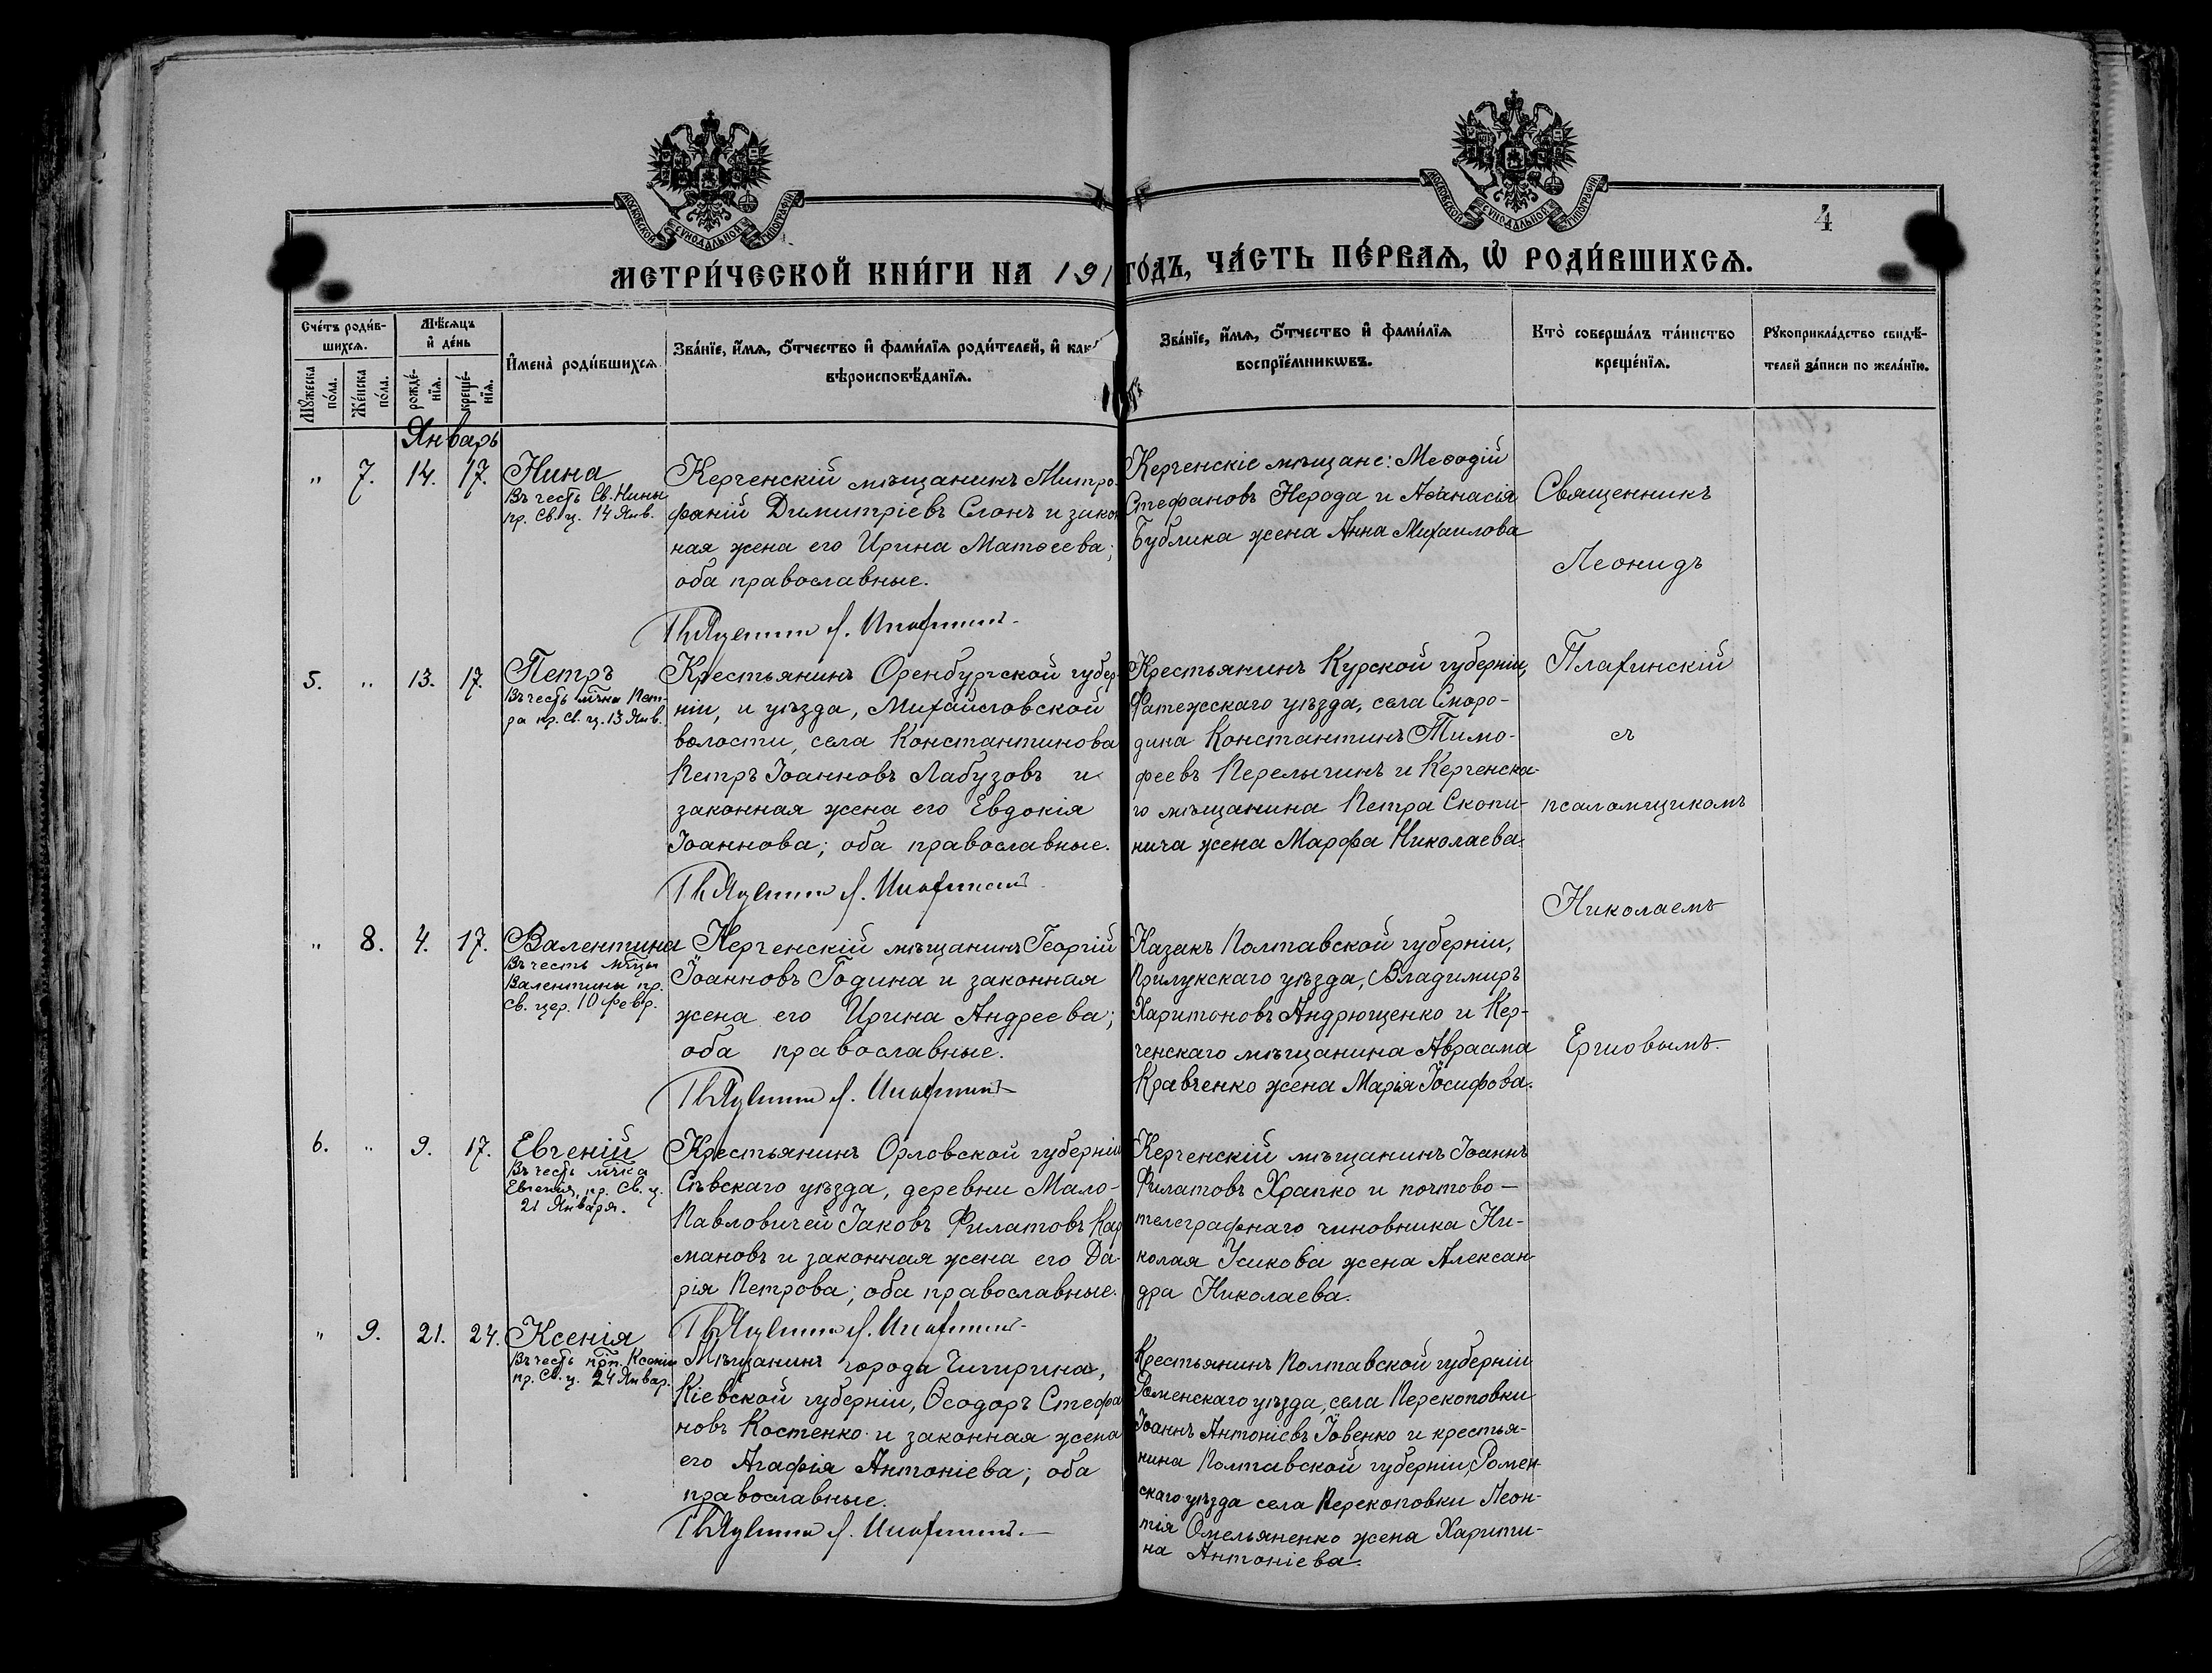 МОСКОВСКОЙ СѴНОДАЛЬНОЙ ТИПОГРАФІИ
МОСКОВСКОЙ СѴНОДАЛЬНОЙ ТИПОГРАФІИ
4
МЕТРИ́ЧЕСКОЙ КНИ́ГИ НА 191
ГО́ДЪ, ЧА́СТЬ ПЕ́РВАѦ, Ѡ҆ РОДИ́ВШИХСѦ.
Сче́тъ роди́в-
шихсѧ.
Мѣ́сѧцъ
и҆ де́нь
И҆мена̀ роди́вшихсѧ
Зва́нїе, и҆́мѧ, ѻ҆́тчество и҆ фами́лїѧ роди́телей, и҆ как
вѣроисповѣ́данїѧ.
Зва́нїе, и҆́мѧ, ѻ҆́тчество и҆ фами́лїѧ
воспрїе́мникѡвъ.
Кто̀ соверша́лъ та́инство
креще́нїѧ.
Рꙋкоприкла́дство свидѣ́-
телей за́писи по жела́нїю.
Мꙋ́жеска
по́ла.
Же́нска
по́ла.
рожде́-
нїѧ.
креще́-
нїѧ.
Январь
" 7. 14. 17. Нина
Въ честь Св. Нины
пр. Св. ц. 14 Янв.
Керченскій мѣщанинъ Митро-
фаній Димитріевъ Слонъ и закон
ная жена его Ирина Матѳеева;
оба православные.
Керченскіе мѣщане: Меѳодій
Стефановъ Нерода и Аѳанасія
Бублика жена Анна Михаилова
Священникъ
Леонидъ
5. " 13. 17. Петръ
Въ честь мч҃ка Пет-
ра пр. Св. ц. 13 Янв.
Крестьянинъ Оренбургской губер-
ніи, и уѣзда, Михайловской
волости, села Константинова
Петръ Іоанновъ Лабузовъ и
законная жена его Евдокія
Іоаннова; оба православные.
Крестьянинъ Курской губерніи,
Фатежскаго уѣзда, села Скоро-
дина Константинъ Тимо-
феевъ Перелыгинъ и Керченска-
го мѣщанина Петра Скопи-
нича жена Марфа Николаева.
съ
псаломщикомъ
Николаемъ
" 8. 4. 17. Валентина
Въ честь мч҃цы
Валентины пр.
Св. цер. 10 Февр.
Керченскій мѣщанинъ Георгій
Іоанновъ Година и законная
жена его Ирина Андреева;
оба православные.
Казакъ Полтавской губерніи,
Прилукскаго уѣзда, Владимиръ
Харитоновъ Андрющенко и Кер-
ченскаго мѣщанина Авраама
Кравченко жена Марія Іосифова.
6. " 9. 17. Евгеній
Въ честь мч҃ка
Евгенія, пр. Св. ц.
21 Января.
Крестьянинъ Орловской губерніи
Сѣвскаго уѣзда, деревни Мало-
Павловичей Іаковъ Филатовъ Кар
мановъ и законная жена его Да-
рія Петрова; оба православные.
Керченскій мѣщанинъ Іоаннъ
Филатовъ Храпко и почтово-
телеграфнаго чиновника Ни-
колая Усикова жена Алексан-
дра Николаева.
" 9. 21. 24. Ксенія
Въ честь прп. Ксеніи
пр. Св. ц. 24 Январ.
Мѣщанинъ города Чигирина,
Кіевской губерніи, Ѳеодоръ Стефа
новъ Костенко и законная жена
его Агафія Антоніева; оба
православные.
Крестьянинъ Полтавской губерніи
Роменскаго уѣзда, села Перекоповки
Іоаннъ Антоніевъ Іовенко и крестья-
нина Полтавской губерніи, Ромен-
скаго уѣзда села Перекоповки Леон-
тія Омельяненко жена Харити-
на Антоніева.